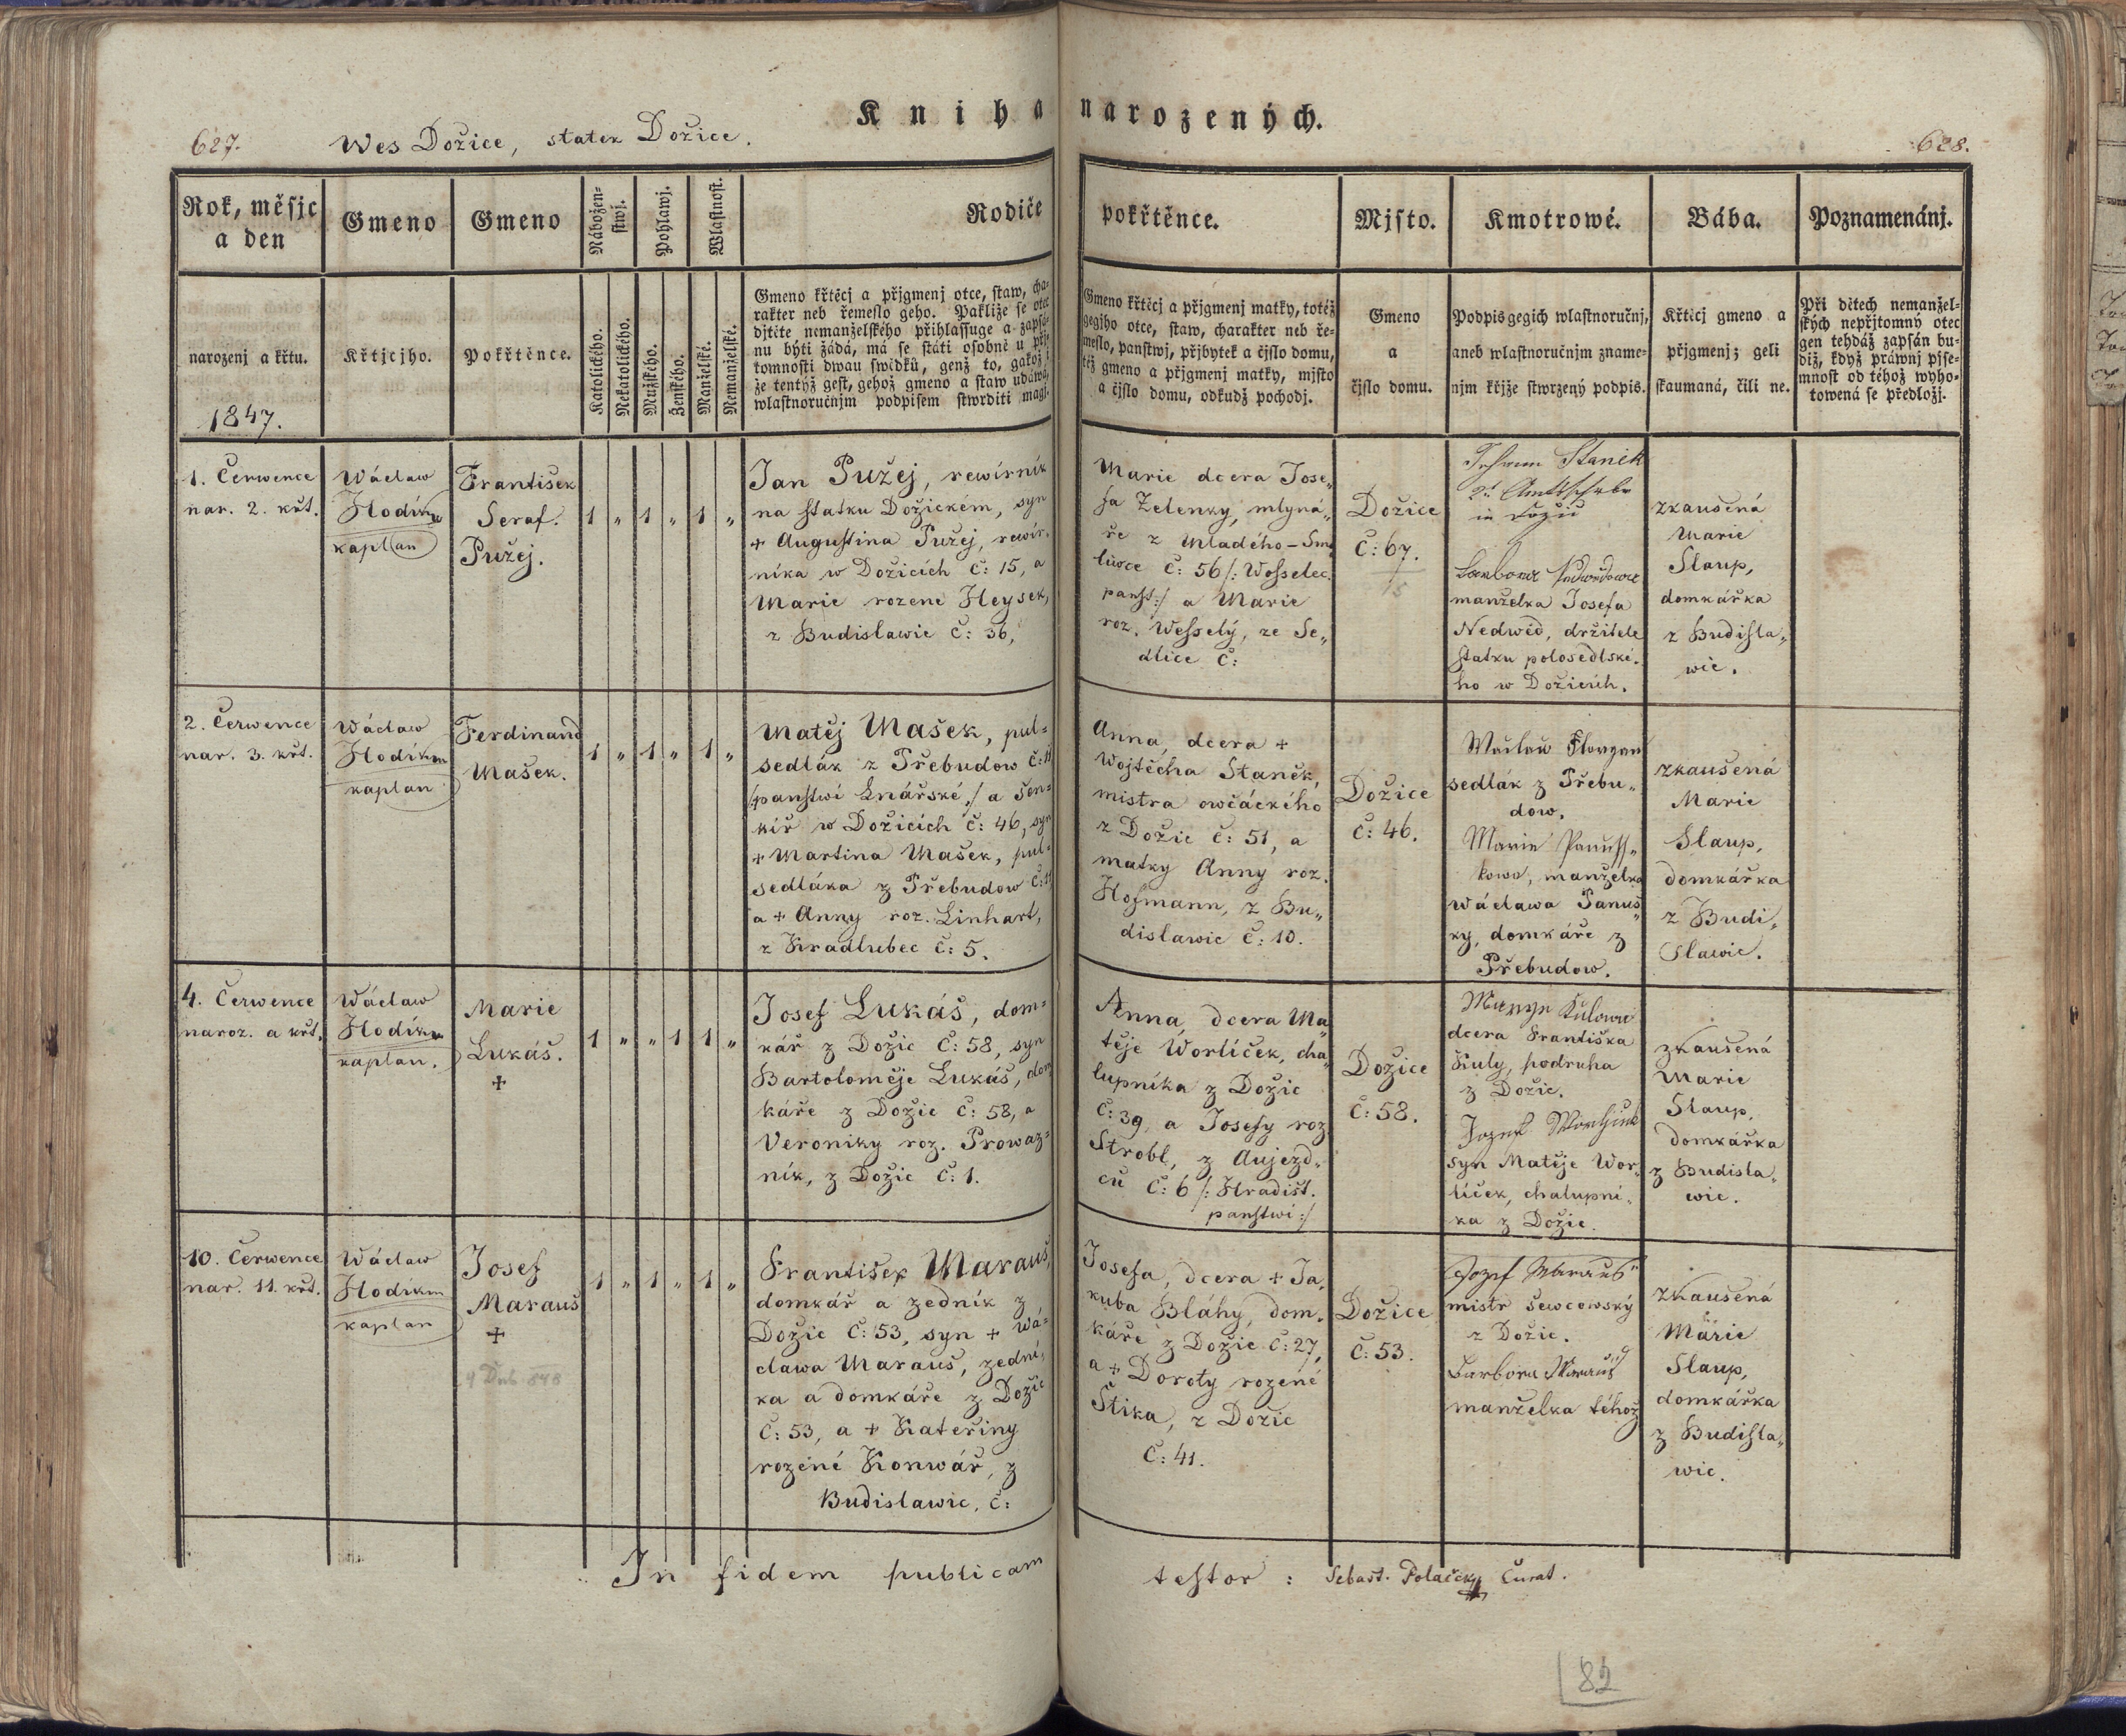 Kniha narozených.
627. Wes Dožice, statek Dožice. 628.
Rok, měsjc
a den
narozenj a křtu.
1847.
Gmeno
Křtjcjho.
Gmeno
Pokřtěnce.
Nábožen-
stwj.
Katolického.
Nekatolického.
Pohlawj.
Mužského.
Ženského.
Wlastnost.
Manželské.
Nemanželské.
Rodiče
Gmeno křtěcj a přjgmenj otce, staw, cha-
rakter neb řemeslo geho. Pakliže se otec
djtěte nemanželského přihlassuge a zapsá-
nu býti žádá, má se státi osobně u pří-
tomnosti dwau swědků, genž to, gakož i
že tentýž gest, gehož gmeno a staw udáwá,
wlastnoručnjm podpisem stwrditi magj.
pokřtěnce.
Gmeno křtěcj a přjgmenj matky, totéž
gegjho otce, staw, charakter neb ře-
meslo, panstwj, přjbytek a čjslo domu,
též gmeno a přjgmenj matky, mjsto
a čjslo domu, odkudž pocházj.
Mjsto.
Gmeno
a
čjslo domu.
Kmotrowé.
Podpis gegich wlastnoručnj,
aneb wlastnoručnjm zname-
njm křjže stwrzený podpis.
Bába.
Křtěcj gmeno a
přjgmenj; geli
skaumaná, čili ne.
Poznamenánj.
Při dětech nemanžel-
ských nepřjtomný otec
gen tehdáž zapsán bu-
diž, když práwnj pjse-
mnost od téhož wyho-
towená se předložj.
1. Července
nar. 2. křt.
Wáclaw
Hodík
kaplan
František
Seraf.
Pužej.
1 „ 1 „ 1 „
Jan Pužej, rewírník
na statku Dožickém, syn
+ Augustina Pužej, rewír-
níka w Dožicích č: 15, a
Marie rozené Heysek,
z Budislawic č: 36,
Marie dcera Jose„
fa Zelenky, mlyná„
ře z Mladého-Smo
liwce č: 56 /: Wosselec.
panst:/ a Marie
roz. Wesselý, ze Se„
dlice č:
Dožice
č: 67.
15
Stanick
in
manželka Josefa
Nedwěd, držitele
statku polosedlské-
ho w Dožicích.
zkaušená
Marie
Slaup,
domkářka
z Budisla„
wic.
2. Července
nar. 3. křt.
Wáclaw
Hodík
kaplan
Ferdinand
Mašek.
1 „ 1 „ 1 „
Matěj Mašek, pul=
sedlák z Přebudow č: 11
/:panstwí Lnářské:/ a šen=
kíř w Dožicích č: 46, syn
+ Martina Mašek, pul=
sedláka z Přebudow č: 11
a + Anny roz. Linhart,
z Hradlubec č: 5.
Anna, dcera +
Wojtěcha Staněk,
mistra owčáckího
z Dožic č: 51, a
matky Anny roz.
Hofmann, z Bu„
dislawic č: 10.
Dožice
č: 46.
Waclaw
sedlák z Přebu„
dow.
Marie Panuss„
kowa, manželka
Wáclawa Panuš„
ky, domkáře z
Přebudow.
zkaušená
Marie
Slaup,
domkářka
z Budi„
slawic.
4. Července
naroz. a křt.
Wáclaw
Hodík
kaplan.
Marie
Lukáš.
+
1 „ „ 1 1 „
Josef Lukáš, dom=
kář z Dožic č: 58, syn
Bartoloměje Lukáš, dom
káře z Dožic č: 58, a
Veroniky roz. Prowaz=
ník, z Dožic č: 1.
Anna, dcera Ma„
těje Worlíček, cha„
lupníka z Dožic
č: 39, a Josefy roz
Strobl, z Aujezd„
ců č: 6 /: Hradišt.
panstwí:/
Dožice
č: 58.
Marye Kulowa
dcera Františka
Kuly, podruha
z Dožic.
Jozef
syn Matěje Wor„
líček, chalupní„
ka z Dožic.
zkaušená
Marie
Slaup,
domkářka
z Budisla„
wic.
10. Července
nar. 11. křt.
Wáclaw
Hodík
kaplan
Josef
Marauš
+
4 Dub 848
1 „ 1 „ 1 „
František Marauš,
domkář a zedník z
Dožic č: 53, syn + Wá=
clawa Marauš, zední„
ka a domkáře z Dožic
č: 53, a + Kateřiny
rozené Konwář, z
Budislawic, č:
Josefa, dcera + Ja„
kuba Bláhy, dom„
káře z Dožic č: 27,
a + Doroty rozené
Štika, z Dožic
č: 41.
Dožice
č: 53.
Jozef Marauš
mistr šewcowský
z Dožic.
Barbora Marauš
manželka téhož
zkaušená
Marie
Slaup,
domkářka
z Budisla„
wic.
In fidem publicam testor : Sebast. Polaček Curat.
82